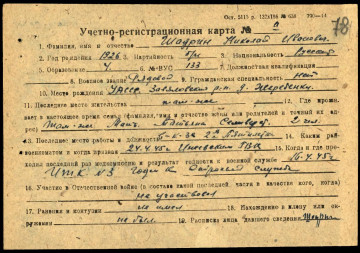 78
Учетно-регистрационная карта №
1. Фамилия, имя и отчество Шадрин Николай Иванович
2. Год рождения 1926 3. Партийность б/п 4. Национальность Русский
5. Образование 4 6. №-ВУС 133 7. Должностная квалификация
8. Воинское звание Рядовой 9. Гражданская специальность нет
10. Место рождения УАССР, Завьяловский р-н, д.
11. Последнее место жительства там-же 12. Где прожи-
вает в настоящее время семья (фамилия, имя и отчество жены или родителей и точный их ад-
рес)
13. Последнее место работы и должность 14. Каким рай-
военкоматом и когда призван 24.4.45г. Ижевским ГВК 15. Когда и где про-
ходил последний раз медкомиссию и результат годности к военной службе 16.4.45г
годен к строевой службе
16. Участие в Отечественной войне (в составе какой последней части, в качестве кого, когда)
не участвовал
17. Ранения и контузии не имел 18. Нахождение в плену или ок-
ружении не был 19. Расписка лица, давшего сведения Шадрин